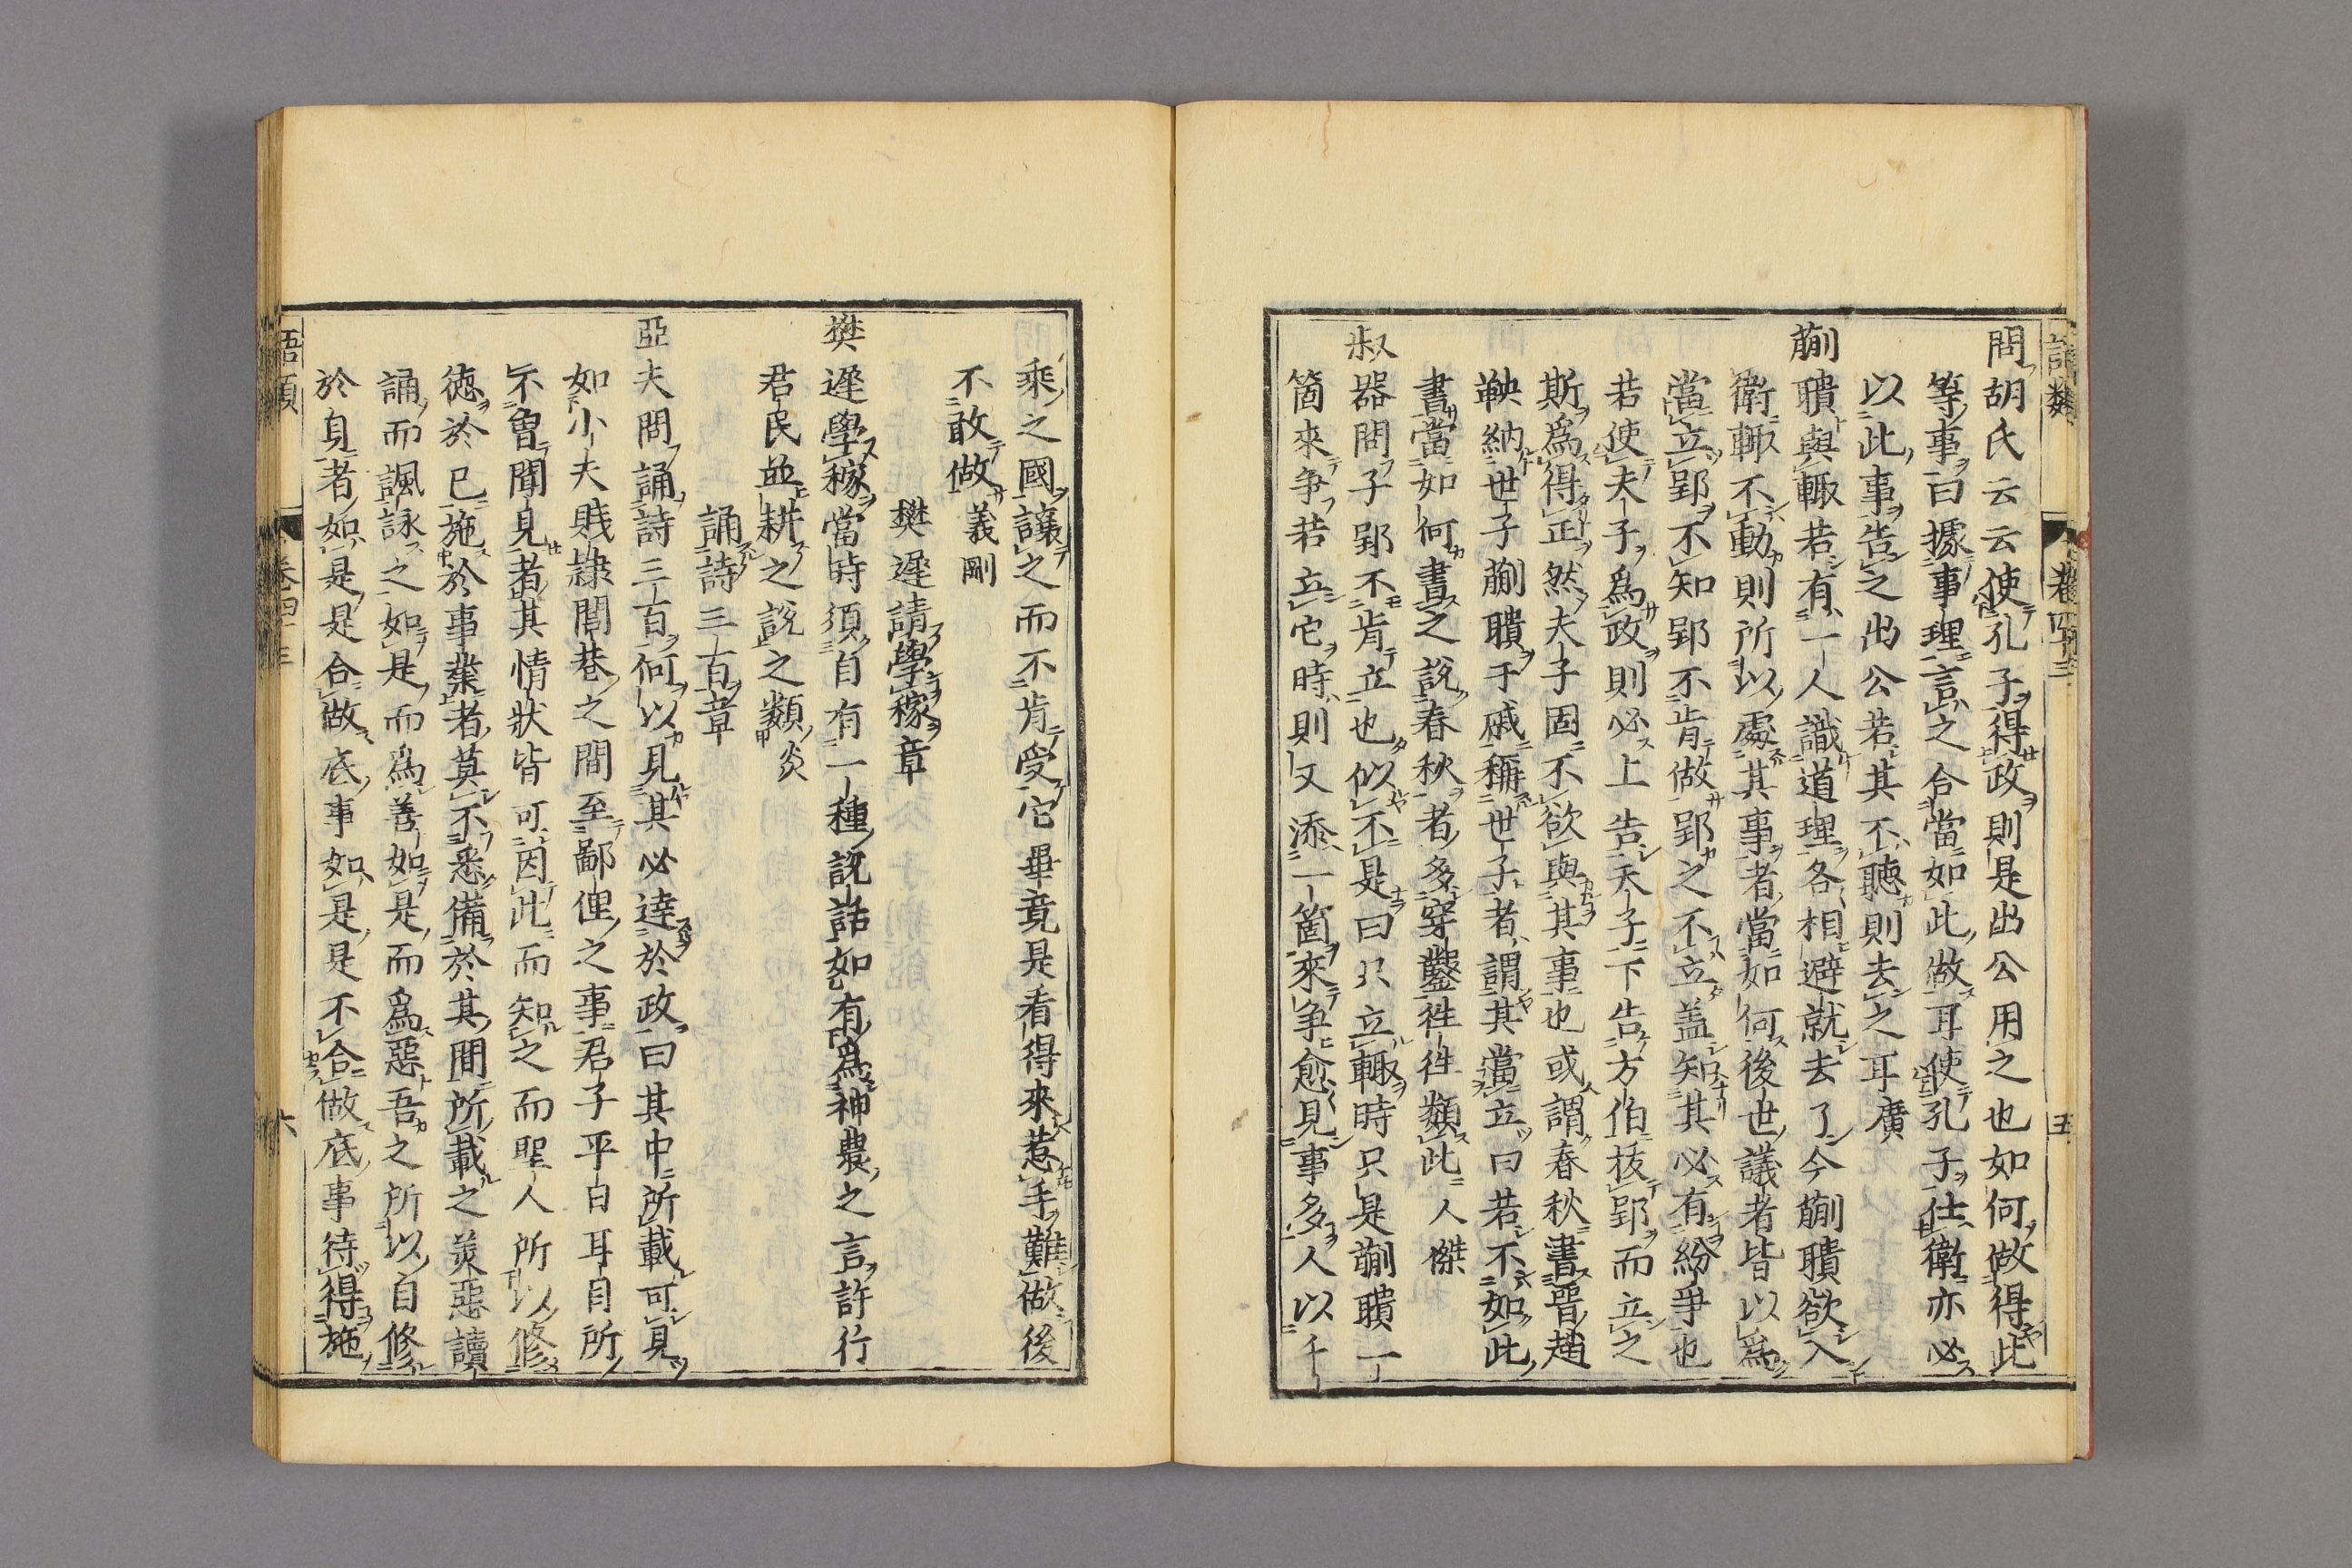 語類 卷四十三 五
問胡氏云云使孔子得政則是出公用之也如何做得此
等事曰據事理言之合當如此做耳使孔子仕衛亦必
以此事告之出公若其不聽則去之耳廣
蒯聵與輒若有一人識道理各相避就去了今蒯聵欲入
衛輒不動則所以處其事者當如何後世議者皆以爲
當立郢不知郢不肯做郢之不立盖知其必有紛爭也
若使夫子爲政則必上告天子下告方伯抜郢而立之
斯爲得正然夫子固不欲與其事也或謂春秋書晉趙
鞅納世子蒯聵于戚稱世子者謂其當立曰若不如此
書當如何書之說春秋者多穿鑿徃徃類此人傑
叔器問子郢不肯立也似不是曰只立輒時只是蒯聵一
箇來爭若立它時則又添一箇來爭愈見事多人以千
乘之國讓之而不肯受它畢竟是看得來惹手難做後
不敢做義剛
樊遲請學稼章
樊遲學稼當時須自有一種說話如有爲神農之言許行
君民並耕之說之類炎
誦詩三百章
亞夫問誦詩三百何以見其必逹於政曰其中所載可見
如小夫賎隸閭巷之間至鄙俚之事君子平日耳目所
不曾聞見者其情狀皆可因此而知之而聖人所以修
德於已施於事業者莫不悉備於其間所載之羙惡讀
誦而諷詠之如是而爲善如是而爲惡吾之所以自修
於身者如是是合做底事如是是不合做底事待得施
語類 卷四十三 六